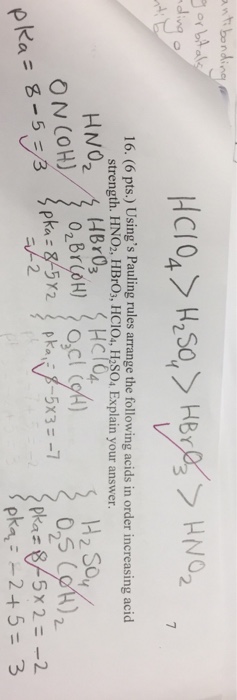 antibonding
g orbitals
nding o
HClO4 > H2SO4 > HBrO3 > HNO2
7
16. (6 pts.) Using's Pauling rules arrange the following acids in order increasing acid
strength. HNO2, HBrO3, HClO4, H2SO4 Explain your answer.
HNO2
ON(OH)
pKa = 8-5=3
HBrO3
O2Br(OH)
pka = 8-5x2
= -2
HClO4
O3Cl(OH)
pka1 = 8-5x3 = -7
H2SO4
O2S(OH)2
pka1 = 8-5x2 = -2
pka2 = -2+5 = 3